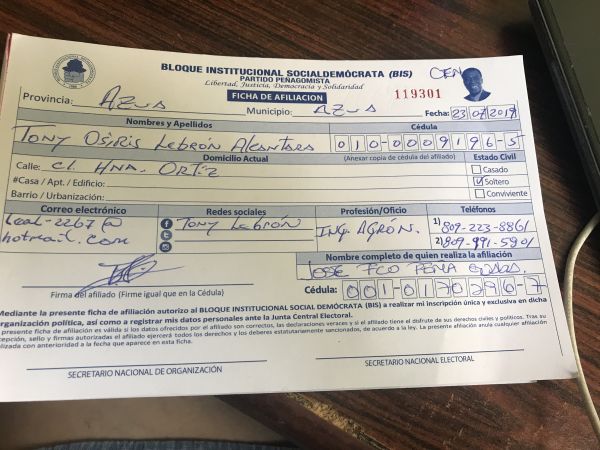 BLOQUE INSTITUCIONAL SOCIALDEMÓCRATA (BIS)
PARTIDO PEÑAGOMISTA
Libertad, Justicia, Democracia y Solidaridad
CEN
FICHA DE AFILIACION
119301
Provincia: AZUA Municipio: AZUA Fecha: 23/07/2019
Nombres y Apellidos Cédula
TONY OSIRIS LEBRÓN ALCANTARA 010-0009196-5
Domicilio Actual (Anexar copia de cédula del afiliado) Estado Civil
Calle: C/ HNA. ORTIZ Casado
#Casa / Apt. / Edificio: Soltero
Barrio / Urbanización: Conviviente
Correo electrónico Redes sociales Profesión/Oficio Teléfonos
Leal-2267@ TONY LEBRÓN ING. AGRÓN. 1) 809-223-8861
hotmail.com 2) 809-991-5901
Nombre completo de quien realiza la afiliación
JOSE FCO PEÑA
Firma del afiliado (Firme igual que en la Cédula) Cédula: 001-0170296-7
Mediante la presente ficha de afiliación autorizo al BLOQUE INSTITUCIONAL SOCIAL DEMÓCRATA (BIS) a realizar mi inscripción única y exclusiva en dicha
organización política, así como a registrar mis datos personales ante la Junta Central Electoral.
presente ficha de afiliación es válida si los datos ofrecidos por el afiliado son correctos, las declaraciones veraces y si el afiliado tiene el disfrute de sus derechos civiles y políticos. Tras su
cepción, sello y firmas autorizadas el afiliado ejercerá todos los derechos y los deberes estatutariamente sancionados, de acuerdo a la ley. La presente afiliación anula cualquier afiliación
alizada con anterioridad a la fecha que aparece en esta ficha.
SECRETARIO NACIONAL DE ORGANIZACIÓN SECRETARIO NACIONAL ELECTORAL